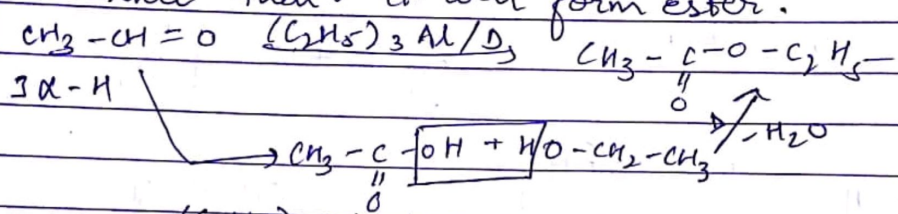 form ester.
CH3 - CH = O (C2H5)3 Al/D, CH3 - C - O - C2H5 -
3α-H || O
-H2O
CH3 - C - OH + HO - CH2 - CH3
|| O